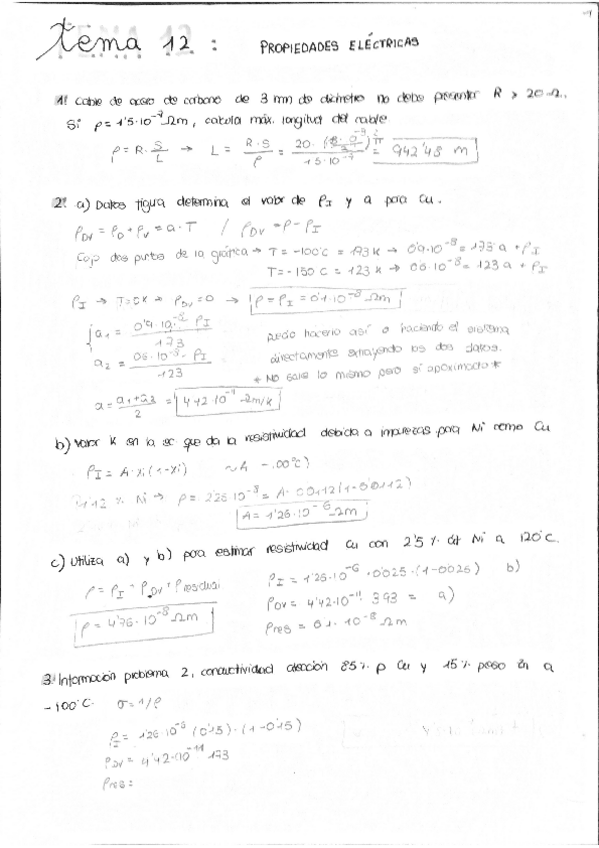 Tema 12 : PROPIEDADES ELÉCTRICAS
1. Cable de acero de carbono de 3 mm de diámetro no debe presentar R > 20 Ω.
Si ρ = 1'5·10⁻⁷ Ωm, calcula máx. longitud del cable
ρ = R · S/L → L = R·S/ρ = = 942'48 m
2. a) Datos figura determina el valor de ρI y a para Cu.
ρDV = ρ0 + ρV = a·T / ρDV = ρ - ρI
Cojo dos puntos de la gráfica → T = -100°C = 173 K → 0'9·10⁻⁸ = 173 a + ρI
T = -150 C = 123 K → 0'6·10⁻⁸ = 123 a + ρI
ρI → T=0K → ρDV = 0 → ρ = ρI = 0'1·10⁻⁸ Ωm
a1 = 0'9·10⁻⁸ - ρI / 173
puedo hacerlo así o haciendo el sistema
directamente ambos dos datos.
a2 = 0'6·10⁻⁸ - ρI / 123
* No sale lo mismo pero sí aproximado *
a = a1 + a2 / 2 = 4'42·10⁻¹¹ Ωm/K
b) Valor K en la ec que da la resistividad debida a impurezas para Ni como Cu
ρI = A·xi (1-xi)
1'12 % Ni → ρ = 2'26·10⁻⁸ = A·0'0112 (1-0'0112)
A = 1'26·10⁻⁶ Ωm
c) Utiliza a) y b) para estimar resistividad Cu con 2'5 % de Ni a 120°C.
ρ = ρI + ρDV + ρresidual
ρI = 1'26·10⁻⁶ · 0'025 · (1-0'025) b)
ρDV = 4'42·10⁻¹¹ · 393 = a)
ρ = 4'76·10⁻⁸ Ωm
ρres = 0'1·10⁻⁸ Ωm
3. Información problema 2, conductividad aleación 85% p Cu y 15% peso Zn a
-100°C. σ = 1/ρ
ρI = 1'26·10⁻⁶ (0'15)·(1-0'15)
ρDV = 4'42·10⁻¹¹ 173
ρres =